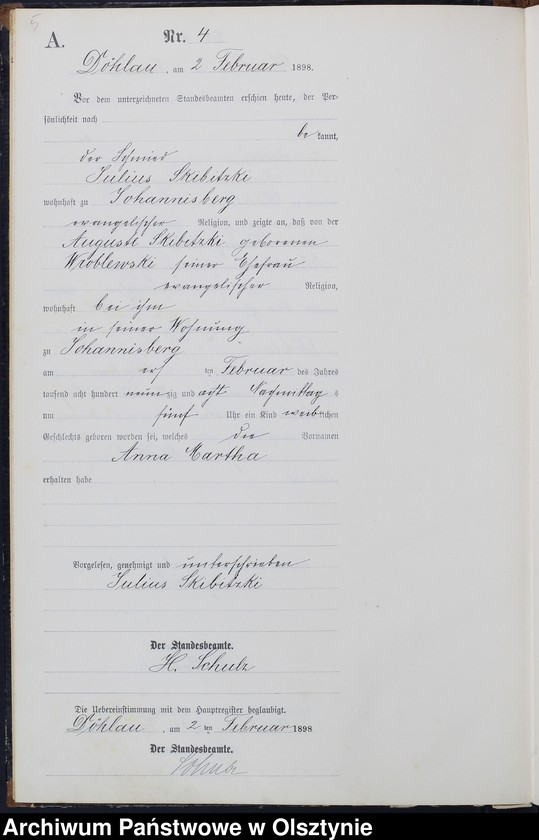 5
A.
Nr. 4
Döhlau, am 2 Februar 1898.
Vor dem unterzeichneten Standesbeamten erschien heute, der Per-
sönlichkeit nach
be kannt,
der Schmied
Julius Skibitzki
wohnhaft zu Johannisberg
evangelischer Religion, und zeigte an, daß von der
Auguste Skibitzki geborenen
Wroblewski seiner Ehefrau
evangelischer Religion,
wohnhaft bei ihm
in seiner Wohnung
zu Johannisberg
am ersten Februar des Jahres
tausend acht hundert neunzig und acht Nachmittags
um fünf Uhr ein Kind weiblichen
Geschlechts geboren worden sei, welches die Vornamen
Anna Martha
erhalten habe
Vorgelesen, genehmigt und unterschrieben
Julius Skibitzki
Der Standesbeamte.
H. Schulz
Die Uebereinstimmung mit dem Hauptregister beglaubigt.
Döhlau, am 2 ten Februar 1898
Der Standesbeamte.
Schulz
Archiwum Państwowe w Olsztynie